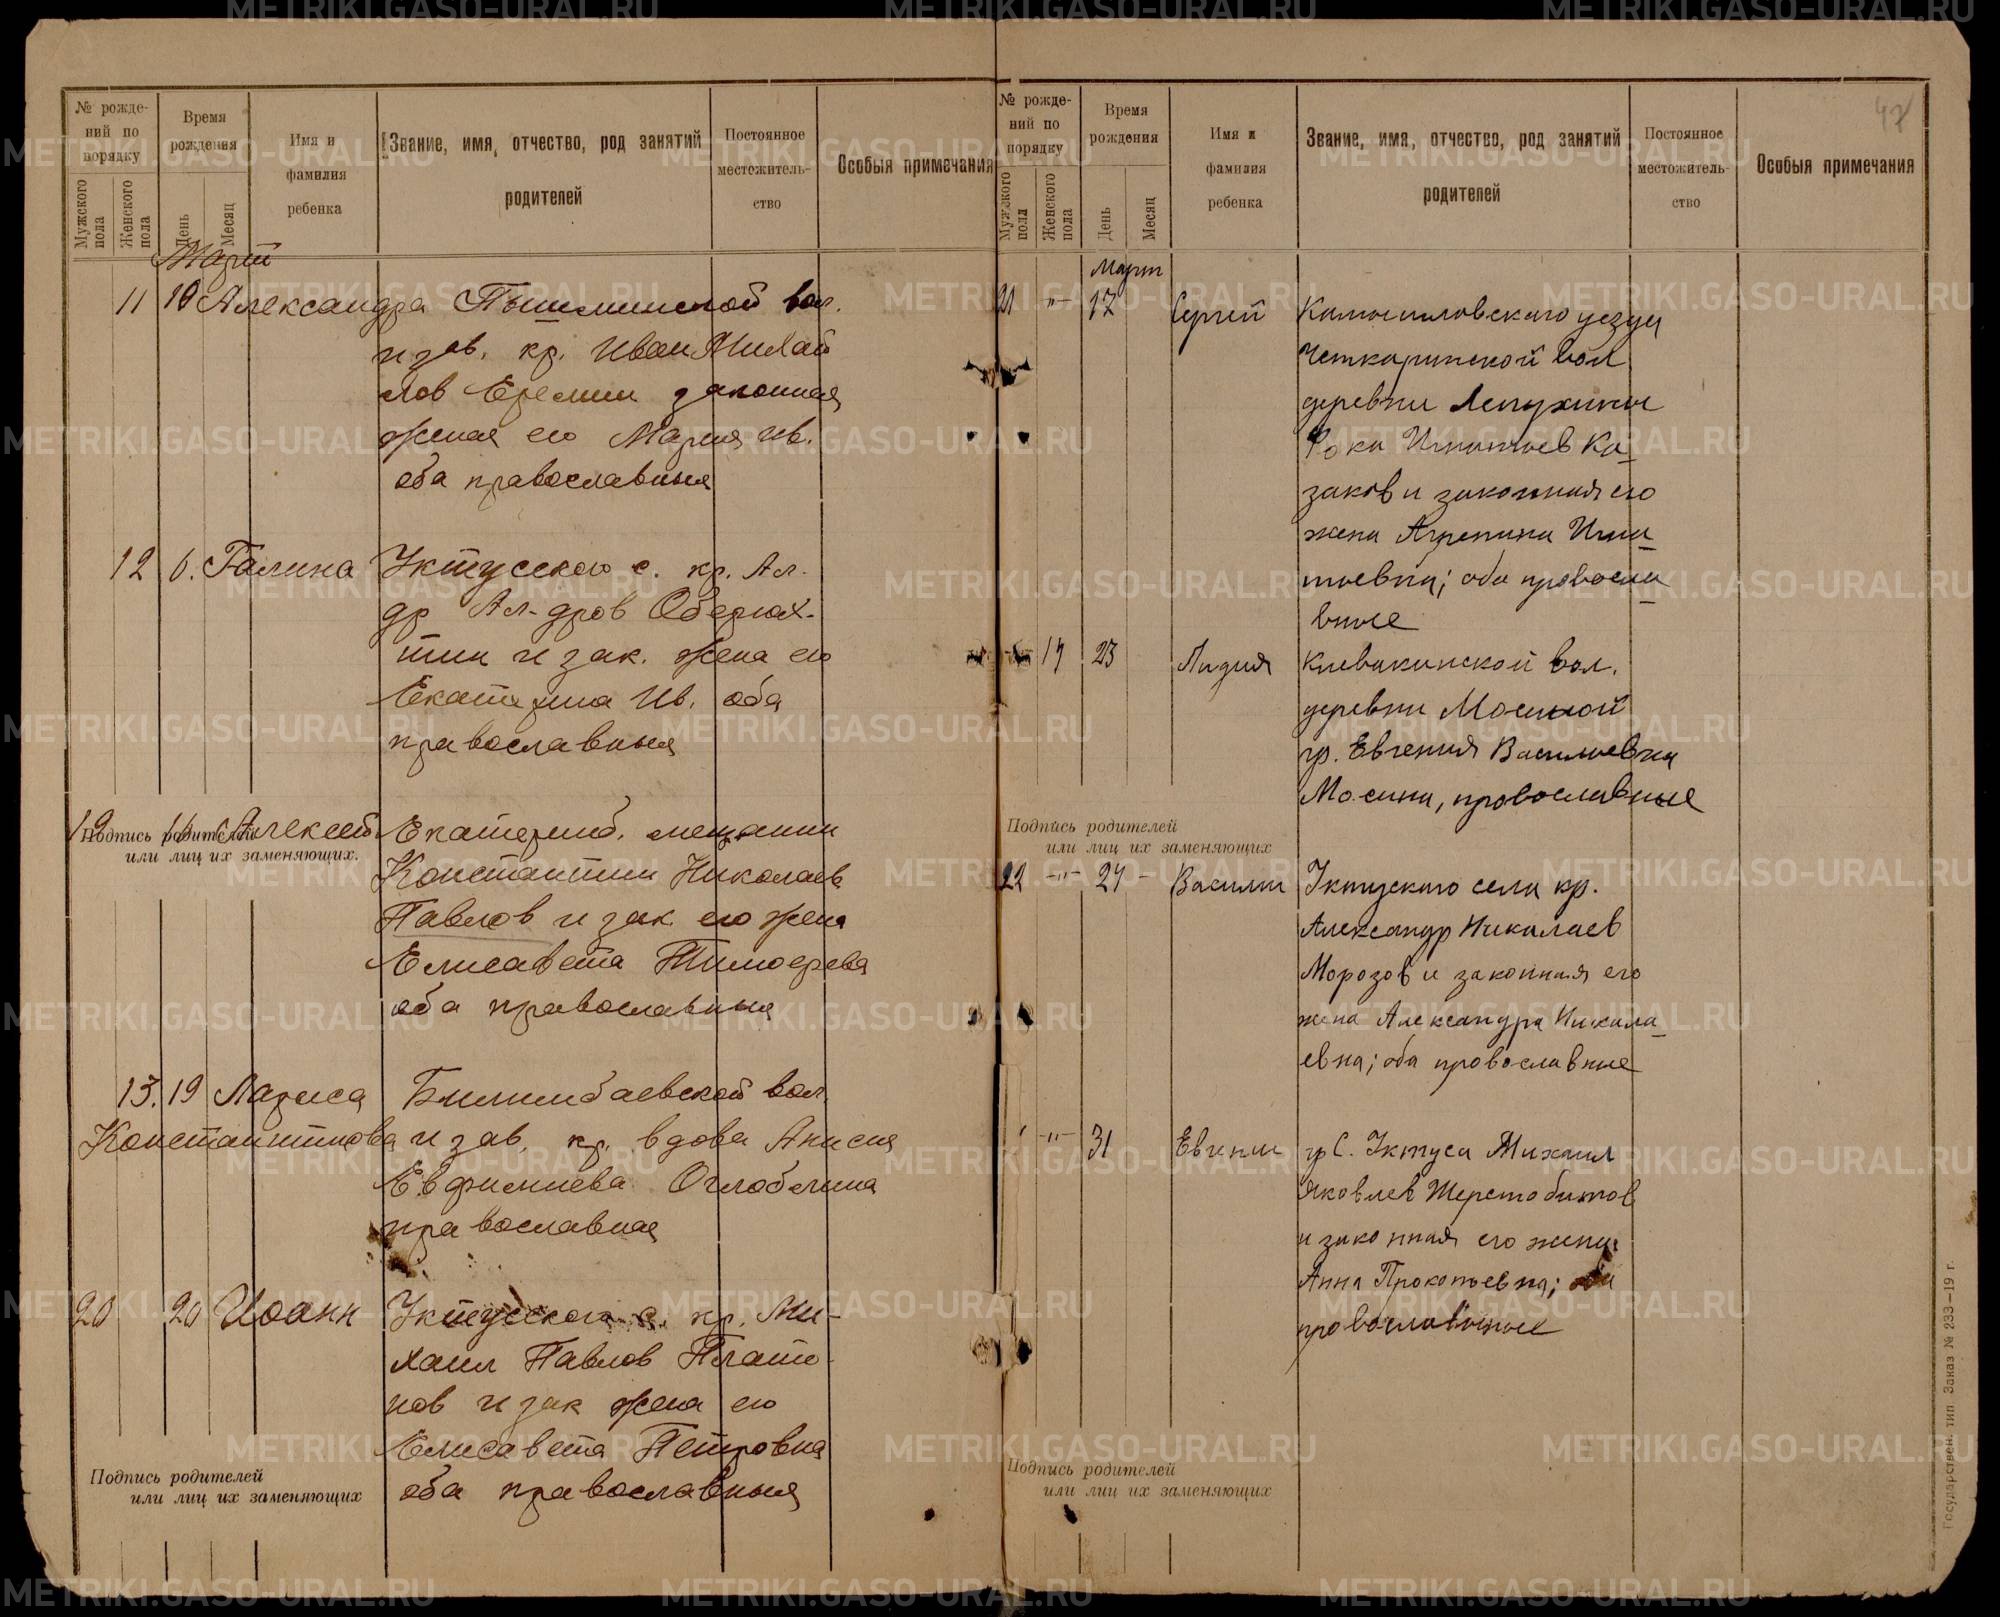 № рожде-
ний по
порядку
Мужского
пола
Женского
пола
Время
рождения
День
Месяц
Имя и
фамилия
ребенка
Звание, имя, отчество, род занятий
родителей
Постоянное
местожитель-
ство
Особыя примечания
Март
11 10 Александра Пышминской вол.
и зав. кр. Иван Михай
лов Еремин законная
жена его Мария Ив.
оба православныя
12 6. Галина Уктусского с. кр. Ал-
др Ал-дров Оберюх-
тин и зак. жена его
Екатерина Ив. оба
православныя
19 Алексей Екатеринб. мещанин
Подпись родителей
или лиц их заменяющих.
Константин Николаев
Павлов и зак. его жена
Елисавета Тимоеева
оба православныя
13. 19 Лариса Билимбаевской вол.
Константинова и зав. кр. вдова Анисия
Евфимиева Оглоблина
православная
20 20 Иоанн Уктусского с. кр. Ми-
хаил Павлов Плато-
нов и зак жена его
Елисавета Петровна
оба православныя
Подпись родителей
или лиц их заменяющих
№ рожде-
ний по
порядку
Мужского
пола
Женского
пола
Время
рождения
День
Месяц
Имя и
фамилия
ребенка
Звание, имя, отчество, род занятий
родителей
Постоянное
местожитель-
ство
Особыя примечания
Март
21 -"- 17 Сергей Камышловскаго уезда
Четкаринской вол
деревни Лепухиной
Фока Игнатьев Ка-
заков и законная его
жена Агрепина Игна-
тьевна; оба правосла-
вные
14 23 Лидия Клевакинской вол.
деревни Мосиной
гр. Евгения Васильевна
Мосина, православные
Подпись родителей
или лиц их заменяющих
22 -"- 24 - Василий Уктускаго села кр.
Александр Николаев
Морозов и законная его
жена Александра Никола-
евна; оба провославные
-"- 31 Евгений гр С. Уктуса Михаил
Яковлев Шерстобитов
и законная его жена
Анна Прокопьевна; оба
провославные
Подпись родителей
или лиц их заменяющих
Государствен. тип Заказ № 233—19 г.
METRIKI.GASO-URAL.RU